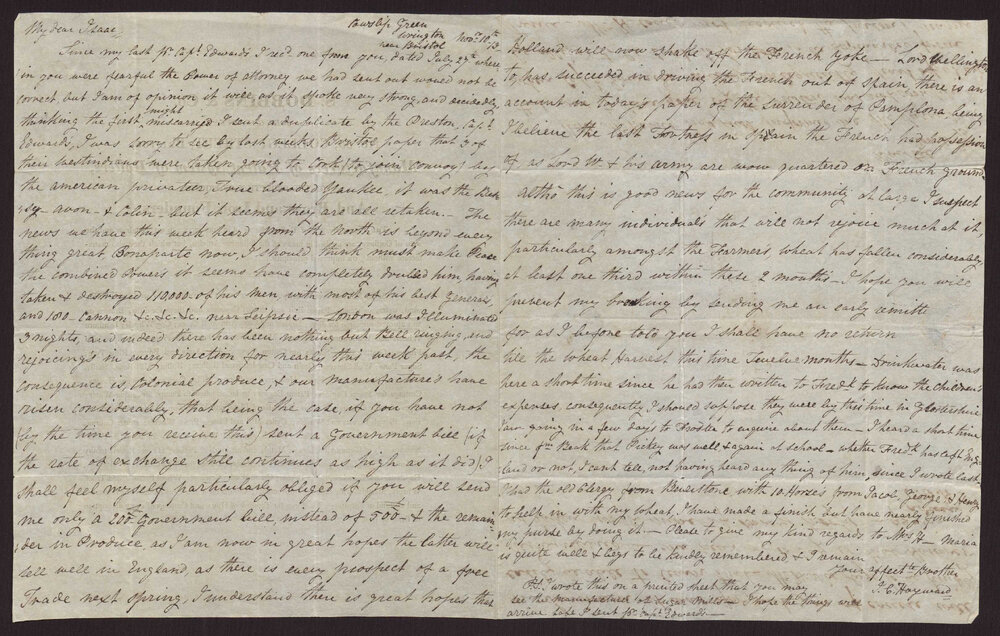 My dear Isaac,
Cowslip Green
Wrington Novr. 10th
near Bristol 13
Since my last pr. Capt. Edwards I recd one from you, dated July 23d where
in you were fearful the Power of attorney we had sent out would not be
correct, but I am of opinion it will as it spoke very strong, and decidedly,
thinking the first might miscarried I sent a duplicate by the Preston, Capt.
Edwards, I was sorry to see by last weeks Bristol paper that 3 of
their westindians, were taken going to Cork (to join convoy) by
the american privateer, True blooded Yankee, it was the Bet
sy - avon - & Colin but it seems they are all retaken. - The
news we have this week heard from the north is beyond every
thing great Bonaparte now, I should think must make Peace
the combined Powers it seems have completely drubbed him having
taken & destroyed 110,000 of his Men with most of his best Generals
and 180 - Cannon &c. &c. &c. near Leipsic - London was Illuminated
3 nights, and indeed there has been nothing but Bell ringing, and
rejoicing's in every direction for nearly this week past, the
consequence is, Colonial produce, & our manufactures have
risen considerably, that being the case, if you have not
(by the time you receive this) sent a Government bill (if
the rate of exchange still continues as high as it did) I
shall feel myself particularly obliged if you will send
me only a 200£ Government bill, instead of 500£ - & the remain
der in Produce as I am now in great hopes the latter will
sell well in England, as there is every prospect of a free
Trade next spring, I understand there is great hopes that
Holland will now shake off the French yoke - Lord Wellington
to, has succeeded in driving the French out of Spain, there is an
account in today's paper of the surrender of Pamplona being
I believe the last Fortress in Spain the French had possession
of as Lord W & his army are now quartered on French ground -
altho this is good news for the community at large I suspect
there are many individuals that will not rejoice much at it,
particularly amongst the Farmers, wheat has fallen considerably
at least one third within these 2 months - I hope you will
prevent my breaking by sending me an early remitte
for as I before told you I shall have no return
till the wheat Harvest this time Twelve months - Drinkwater was
here a short time since he has then written to Fredk to know the Children's
expences, consequently I should suppose they were by this time in Glostershire
I am going in a few days to to enquire about them - I heard a short time
since fm Beak that Dickey was well & again at school - whether Fredk has left Eng
land or not, I cant tell, not having heard any thing of him, since I wrote last.
I had the old Clergy from with 10 Horses from Jacob, George & Henry
to help in with my wheat, I have made a finish but have nearly finished
my purse by doing it - Please to give my kind regards to Mrs H - Maria
is quite well & begs to be kindly remembered, & I remain
Your affectte Brother
T. C. Hayward
I wrote this on a printed sheet that you may
see the manufacture of Sugar Mills - I hope the things will
arrive safe I sent pr. Capt. Edwards -